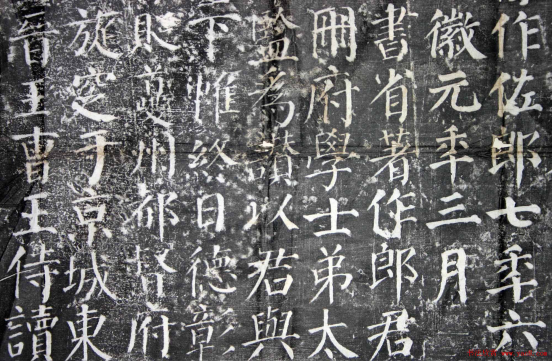 作佐郎七年六
徽元年三月
書省著作郎君
冊府學士弟太
為讃以君與
下惟終日德彰
夔州都督府
旋窆于京城東
晉王曹王待讀